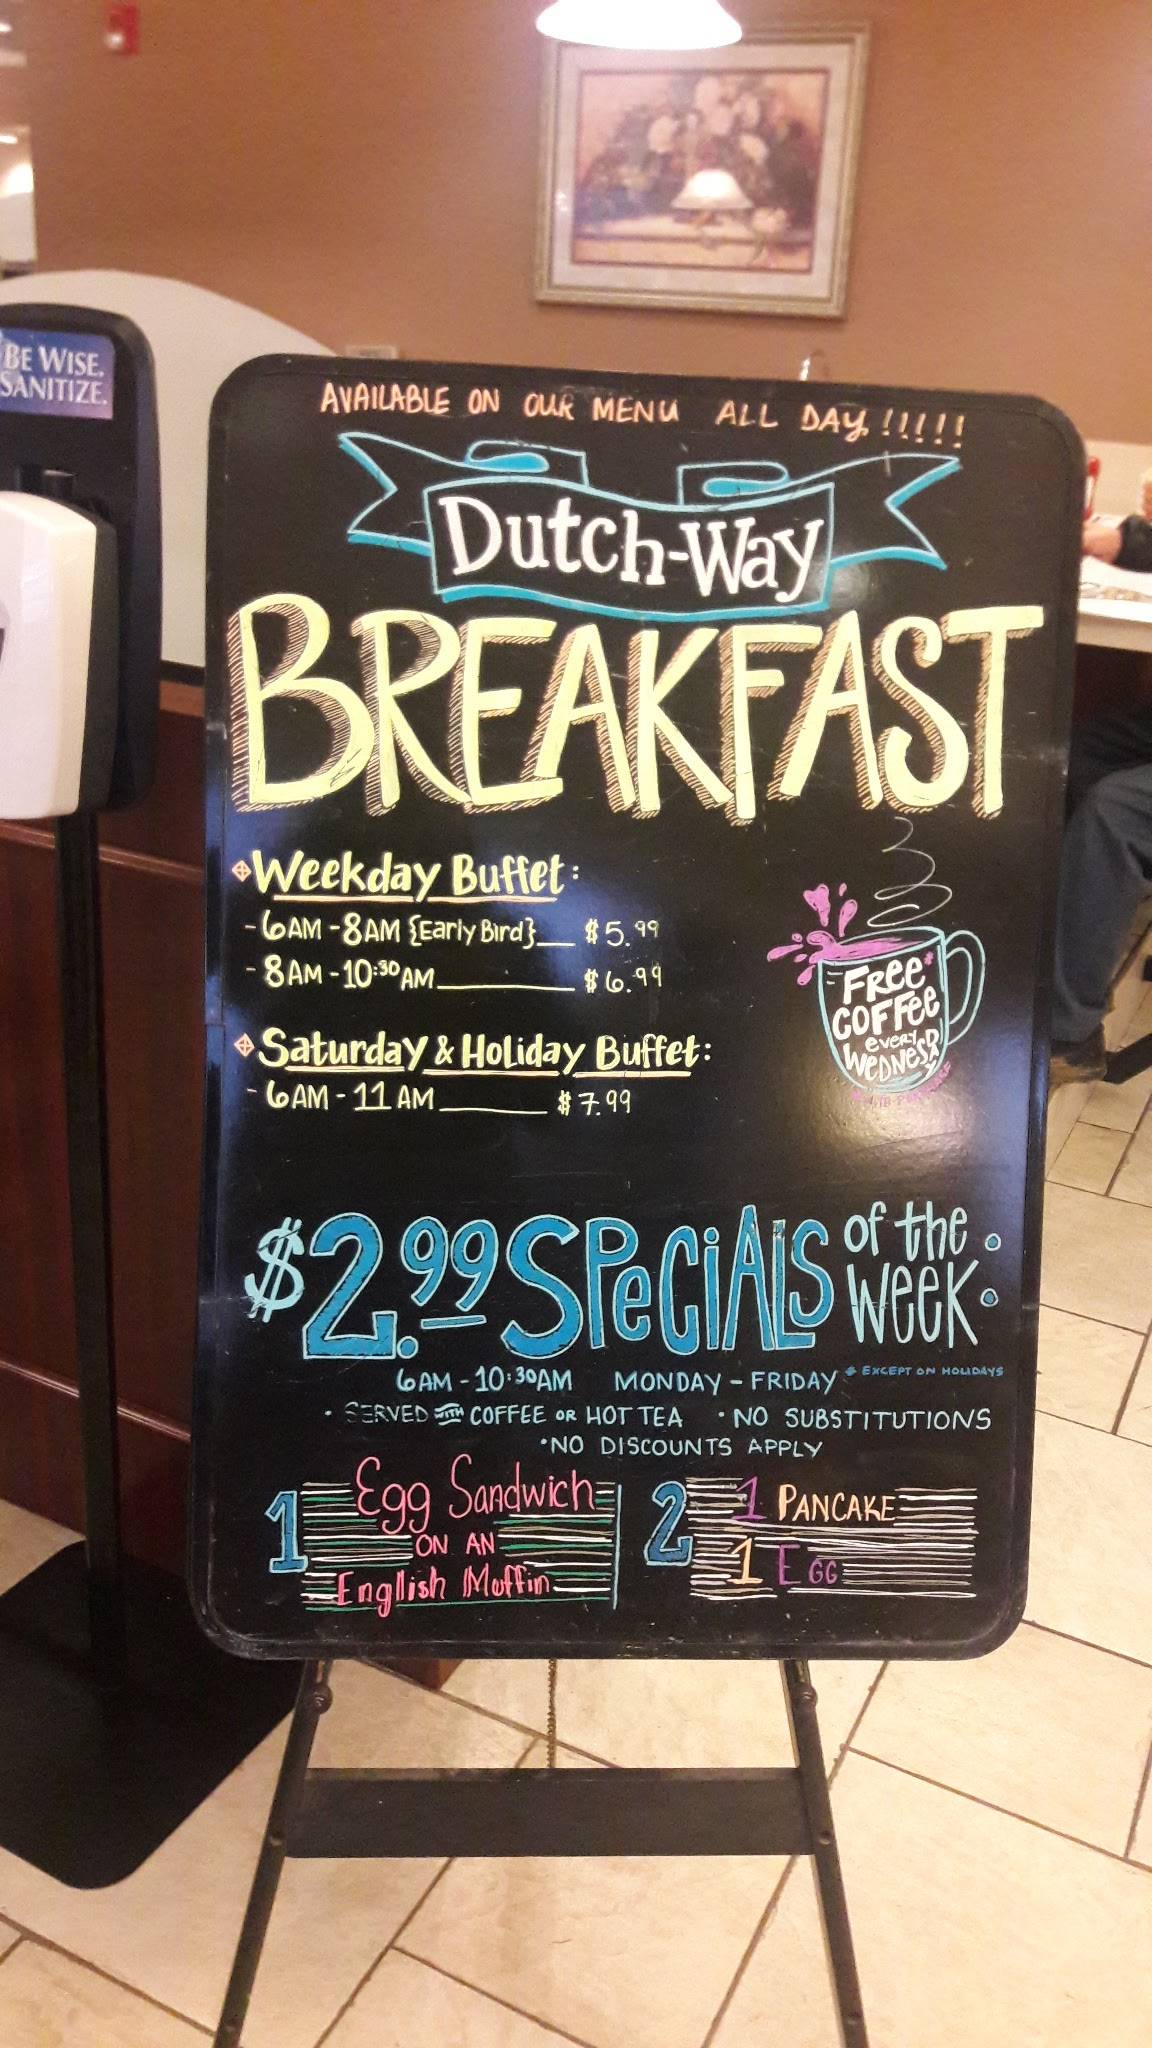 BE WISE.
SANITIZE.
AVAILABLE ON OUR MENU ALL DAY!!!!!
Dutch-Way
BREAKFAST
Weekday Buffet:
- 6AM - 8AM {Early Bird}___ $5.99
- 8AM - 10:30AM__________ $6.99
Saturday & Holiday Buffet:
- 6AM - 11 AM________ $7.99
FREE*
COFFEE
EVERY
WEDNESDAY
$2.99 SPECIALS of the
WEEK:
6AM - 10:30AM MONDAY - FRIDAY * EXCEPT ON HOLIDAYS
• SERVED WITH COFFEE OR HOT TEA • NO SUBSTITUTIONS
• NO DISCOUNTS APPLY
1 Egg Sandwich
ON AN
English Muffin
2 1 PANCAKE
1 EGG